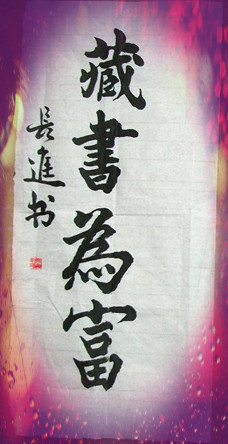 藏書為富
長進书